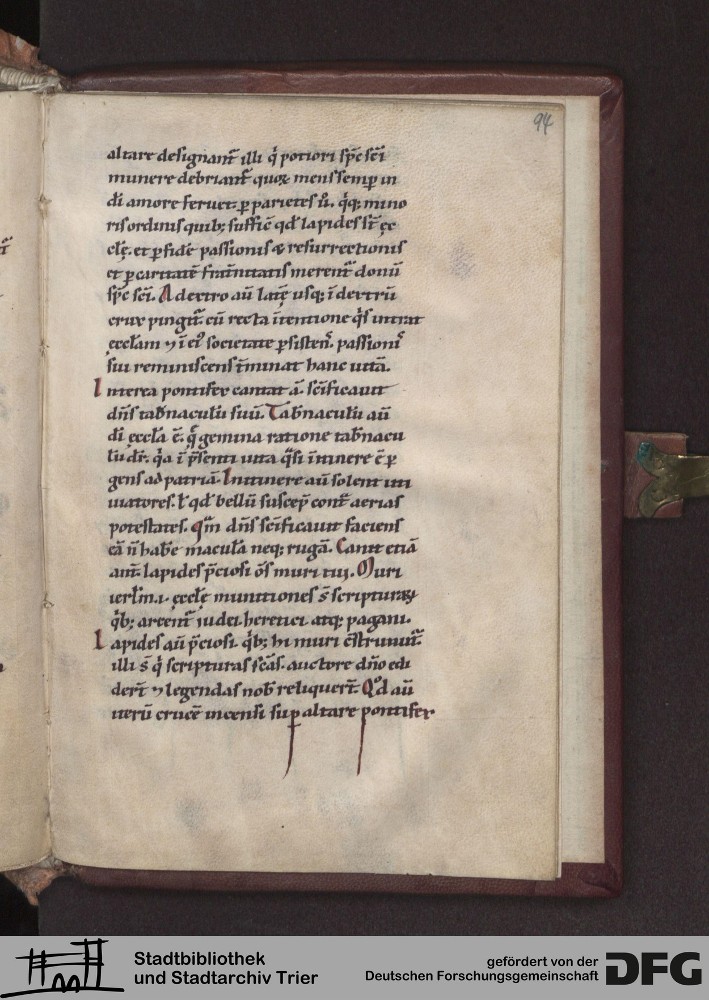 94
altare designant̄ illi q̇ potiori sp̄c sc̄i
munere debriant̄ quoꝝ mens semꝑ in
dī amore feruet. ꝑ parietes ů. q̇q; mino
ris ordinis quib; suffic̄ qd̄ lapides st̄ ęc
clę. et ꝑ fidē passionis & resurrectionis
et ꝑ caritatē frat̄nitatis merent̄ donū
sp̄c sc̄i. A dextro aū latę usq; ī dextrū
crux pingit̄. cū recta ītentione q̇s intrat
ęccłam ⁊ ī eiꝰ societate ꝑsisten̄. passionī
sui reminiscens t̄minat hanc uitā.
Interea pontifex cantat ā. sc̄ificauit
dn̄s tab̄naculū suū. Tab̄naculū aū
dī ęccła ē. q̄ gemina ratione tab̄nacu
lū dr̄. q̇a ī p̄senti uita q̇si ītinere ē ꝑ
gens ad patriā. In itinere aū solent uti
uiatores. ł qd̄ bellū suscep̄ cont̄ aerias
potestates. qm̄ dn̄s sc̄ificauit faciens
eā n̄ hab̄e maculā neq; rugā. Canit etiā
ant. lapides p̄ciosi oms̄ muri tui. Muri
ierłm .i. ęcclę munitiones s̄ scripturaꝝ
q̇b; arcent̄ iudei. heretici atq; pagani.
Lapides aū p̄ciosi. q̇b; hi muri cstruunt̄.
illi s̄ q̇ scripturas sc̄as. auctore dn̄o edi
dert̄ ⁊ legendas nob̄ reliquert̄. Qd̄ aū
iterū crucē incensi suꝑ altare pontifex
Stadtbibliothek
und Stadtarchiv Trier
gefördert von der
Deutschen Forschungsgemeinschaft
DFG